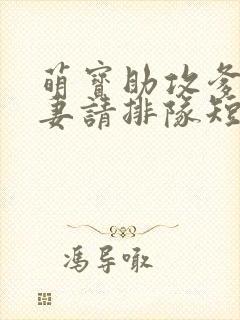 萌寶助攻爹
妻請排隊短
馮导噉